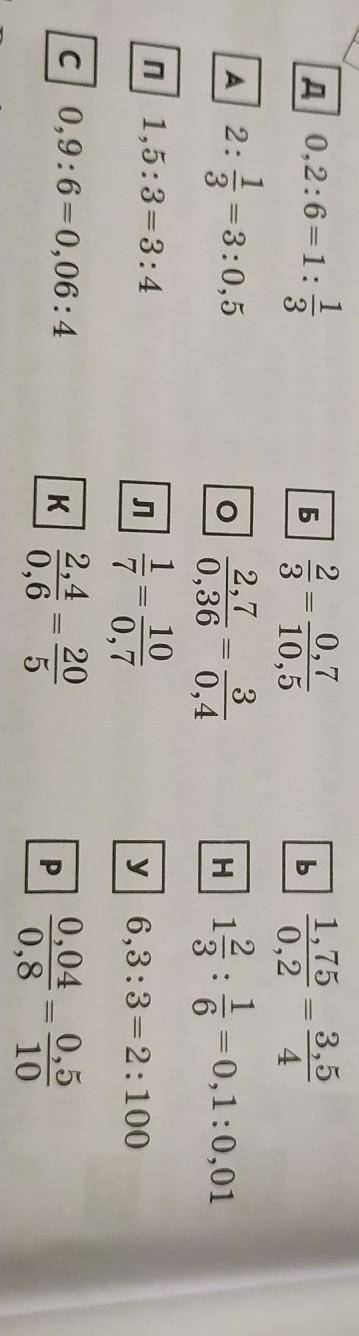 Д 0,2 : 6 = 1 : 1/3
А 2 : 1/3 = 3 : 0,5
П 1,5 : 3 = 3 : 4
С 0,9 : 6 = 0,06 : 4
Б 2/3 = 0,7/10,5
О 2,7/0,36 = 3/0,4
Л 1/7 = 10/0,7
К 2,4/0,6 = 20/5
Ь 1,75/0,2 = 3,5/4
Н 1 2/3 : 1/6 = 0,1 : 0,01
У 6,3 : 3 = 2 : 100
Р 0,04/0,8 = 0,5/10